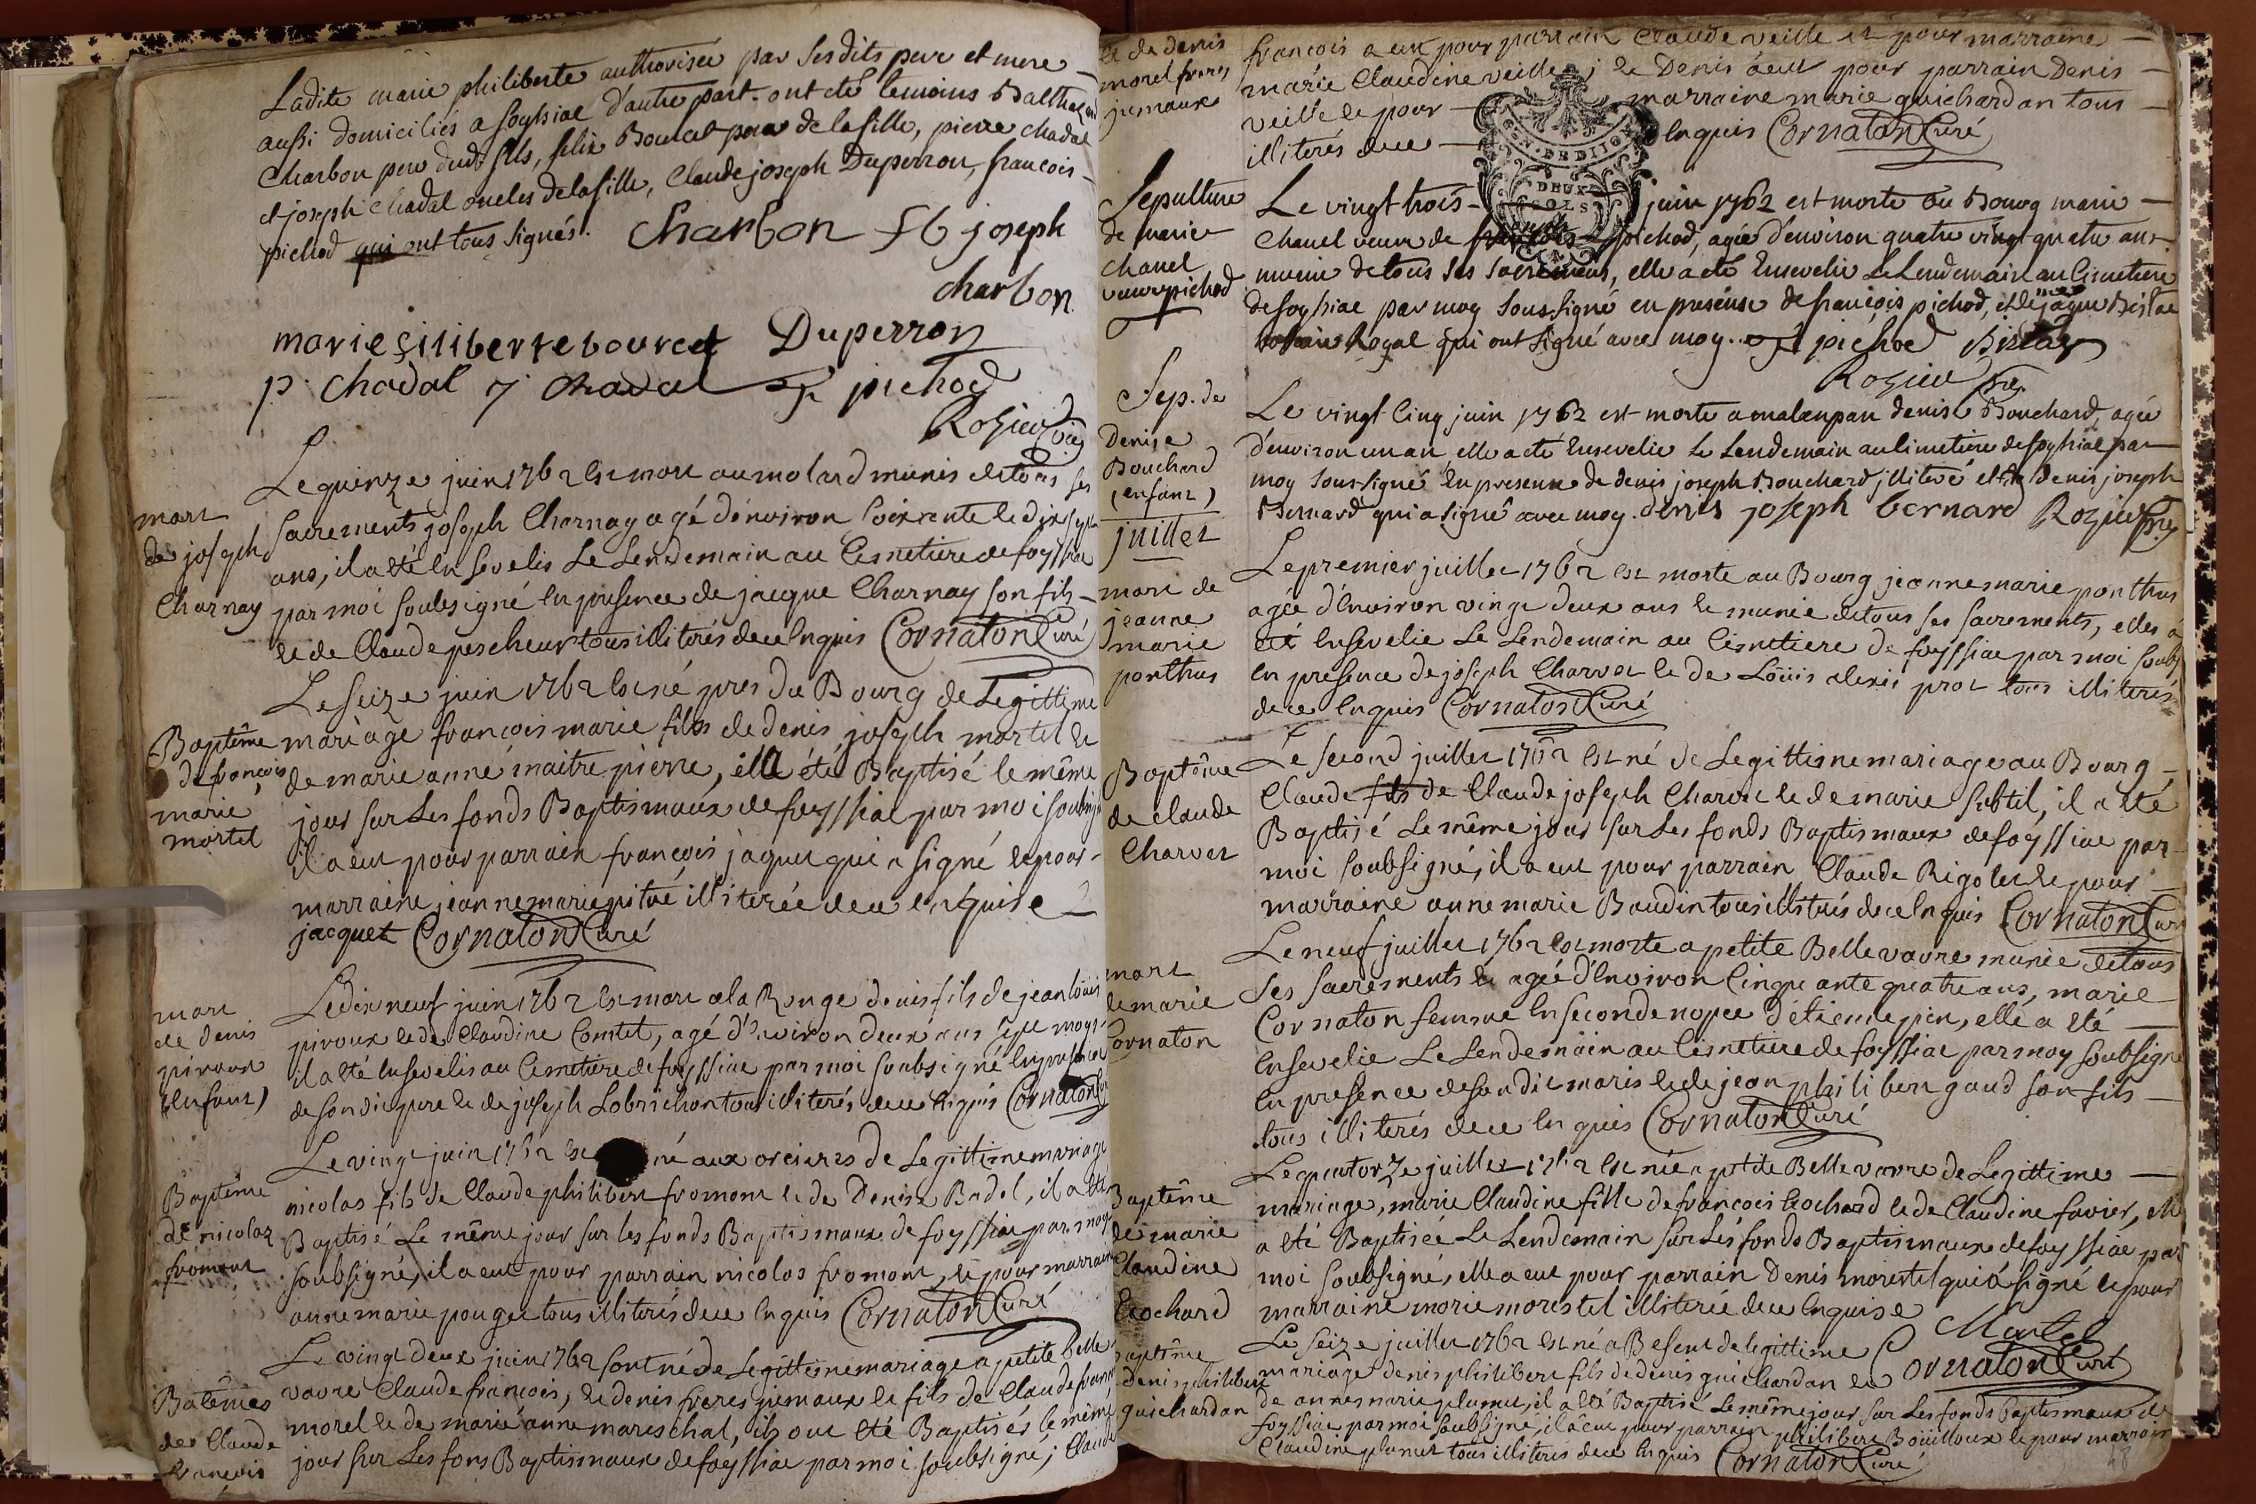 Ladite marie philiberte authorisée par sesdits pere et mere
aussi domiciliés a foyssiac d'autre part. ont été temoins Balthazard
Charbon pere dudt fils, felix Bourcet pere de la fille, pierre chadal
et joseph Chadal oncles de la fille, Claude joseph Duperron, francois
pichod qui ont tous signés. Charbon joseph
charbon
marie filiberte bourcet Duperron
p. Chadal j chadal pichod
Rozier vic
Le quinze juin 1762 est mort au molard munis de tous ses
mort
de joseph
Charnay
sacrements joseph Charnay agé d'environ soixante et dix sept
ans, il a eté Ensevelis Le Lendemain au Cimetiere de foyssiac
par moi soubsigné en presence de jacque Charnay son fils
et de Claude pescheur tous illiterés de ce Enquis Cornaton Curé
Le seize juin 1762 est né pres du Bourg de Legittime
Baptême
de francois
marie
mortel
mariage francois marie fils de denis joseph mortel et
de marie anne maitre pierre, il a été Baptisé le même
jour sur Les fonds Baptismaux de foyssiac par moi soubsigné
il a eut pour parrain francois jaquet qui a signé et pour
marraine jeanne marie pitué illiterée de ce enquise
jacquet Cornaton Curé
Le dix neuf juin 1762 est mort a la Ronge denis fils de jean loüis
mort
de denis
piroux
(enfant)
piroux et de Claudine Comtet, agé d'environ deux ans sept moys
il a eté Ensevelis au Cimetiere de foyssiac par moi soubsigné En presence
de son dit pere et de joseph Lobrichon tous illiterés de ce Enquis Cornaton Curé
Le vingt juin 1762 est né aux orcieres de Legittime mariage
Baptême
de nicolas
fromont
nicolas fils de Claude philibert fromont et de Denise Badel, il a été
Baptisé Le même jour sur les fonds Baptismaux de foyssiac par moy
soubsigné, il a eut pour parrain nicolas fromont, et pour marraine
anne marie pouget tous illiterés de ce Enquis Cornaton Curé
Le vingt deux juin 1762 sont né de Legittime mariage a petite Belle
Batêmes
de Claude
francois
vavre Claude francois, et denis freres jumaux et fils de Claude francois
morel et de marie anne mareschal, ils ont eté Baptisés le même
jour sur Les fons Baptismaux de foyssiac par moi soubsigné, Claude
et de denis
morel freres
jumaux
francois a eut pour parrain Claude veille et pour marraine
marie Claudine veille; et Denis a eut pour parrain Denis
veille et pour marraine marie guichardan tous
illiterés de ce Enquis Cornaton Curé
GEN. DE DIJON
DEUX
SOLS
Sepulture
de marie
chanel
veuve pichod
Le vingt trois juin 1762 est morte au Bourg marie
Chanel veuve de francois pichod, agée d'environ quatre vingt quatre ans
munie de tous ses sacremens, elle a été Ensevelie Le Lendemain au Cimetiere
de foyssiac par moy sous signé en presense de francois pichod, et de me jaque Bistac
notaire Royal qui ont signé avec moy. pichod Bistac
Rozier vic
Sep. de
Denise
Bouchard
(enfant)
Le vingt Cinq juin 1762 est morte a malaupan denise Bouchard, agée
d'environ un an elle a été Ensevelie Le Lendemain au Cimetiere de foyssiac par
moy sous signé En presense de denis joseph Bouchard jlliteré et de denis joseph
Bernard qui a signé avec moy. denis joseph bernard Rozier vic
juillet
mort de
jeanne
marie
ponthus
Le premier juillet 1762 est morte au Bourg jeanne marie ponthus
agée d'Environ vingt deux ans et munie de tous ses sacrements, elle a
eté Ensevelie Le Lendemain au Cimetiere de foyssiac par moi soubs
En presence de joseph Charvet et de Loüis alexis prot tous illiterés
de ce Enquis Cornaton Curé
Baptême
de claude
Charvet
Le second juillet 1762 est né de Legittime mariage au Bourg
Claude fils de Claude joseph Charvet et de marie subtil, il a eté
Baptisé Le même jour sur Les fonds Baptismaux de foyssiac par
moi soubsigné, il a eut pour parrain Claude Rigolet et pour
marraine anne marie Baudin tous illiterés de ce Enquis Cornaton Curé
mort
de marie
Cornaton
Le neuf juillet 1762 est morte a petite Bellevavre munie de tous
Ses sacrements et agée d'Environ Cinquante quatre ans, marie
Cornaton femme En seconde nopce d'étienne pin, elle a eté
Ensevelie Le Lendemain au Cimetiere de foyssiac par moy soubsigné
En presence de son dit maris et de jean philibert gaud son fils
tous illiterés de ce Enquis Cornaton Curé
Baptême
de marie
Claudine
Cochard
Le quatorze juillet 1762 est née a petite Bellevavre de Legittime
mariage, marie Claudine fille de francois Cochard et de Claudine favier, elle
a eté Baptisée Le Lendemain sur Les fonds Baptismaux de foyssiac par
moi soubsigné, elle a eut pour parrain Denis morestel qui a signé et pour
marraine marie morestel illiterée de ce Enquise
Martel
Baptême
denis philibert
guichardan
Le seize juillet 1762 est né a Besent de legittime Cornaton Curé
mariage denis philibert fils de denis guichardan et
de anne marie plumet, il a eté Baptisé Le même jour sur Les fonds baptismaux de
foyssiac par moi soubsigné, il a eut pour parrain philibert Boüilloux et pour marraine
Claudine plumet tous illiterés de ce Enquis Cornaton Curé